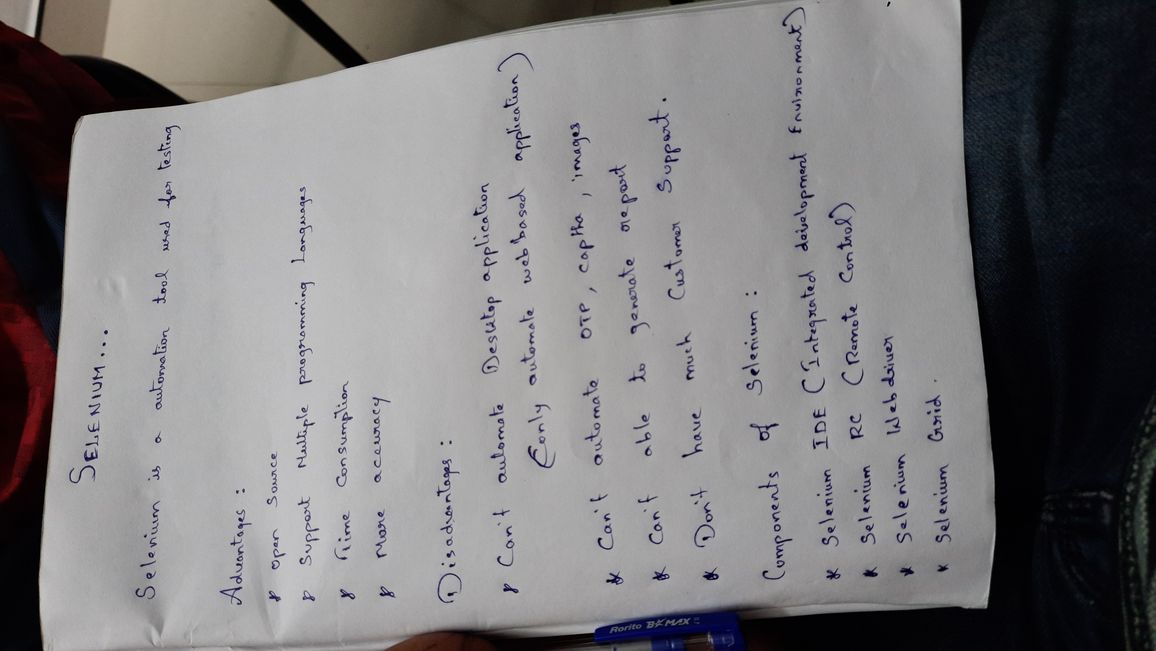 SELENIUM...
Selenium is a automation tool used for testing
Advantages :
* open source
* Support Multiple programming Languages
* Time consumption
* More accuracy
Disadvantages :
* Can't automate Desktop application
(only automate web based application)
* Can't automate OTP, captha, images
* Can't able to generate report
* Don't have much Customer Support.
Components of Selenium :
* Selenium IDE (Integrated development Environment)
* Selenium RC (Remote Control)
* Selenium Webdriver
* Selenium Grid.
Rorito B*MAX